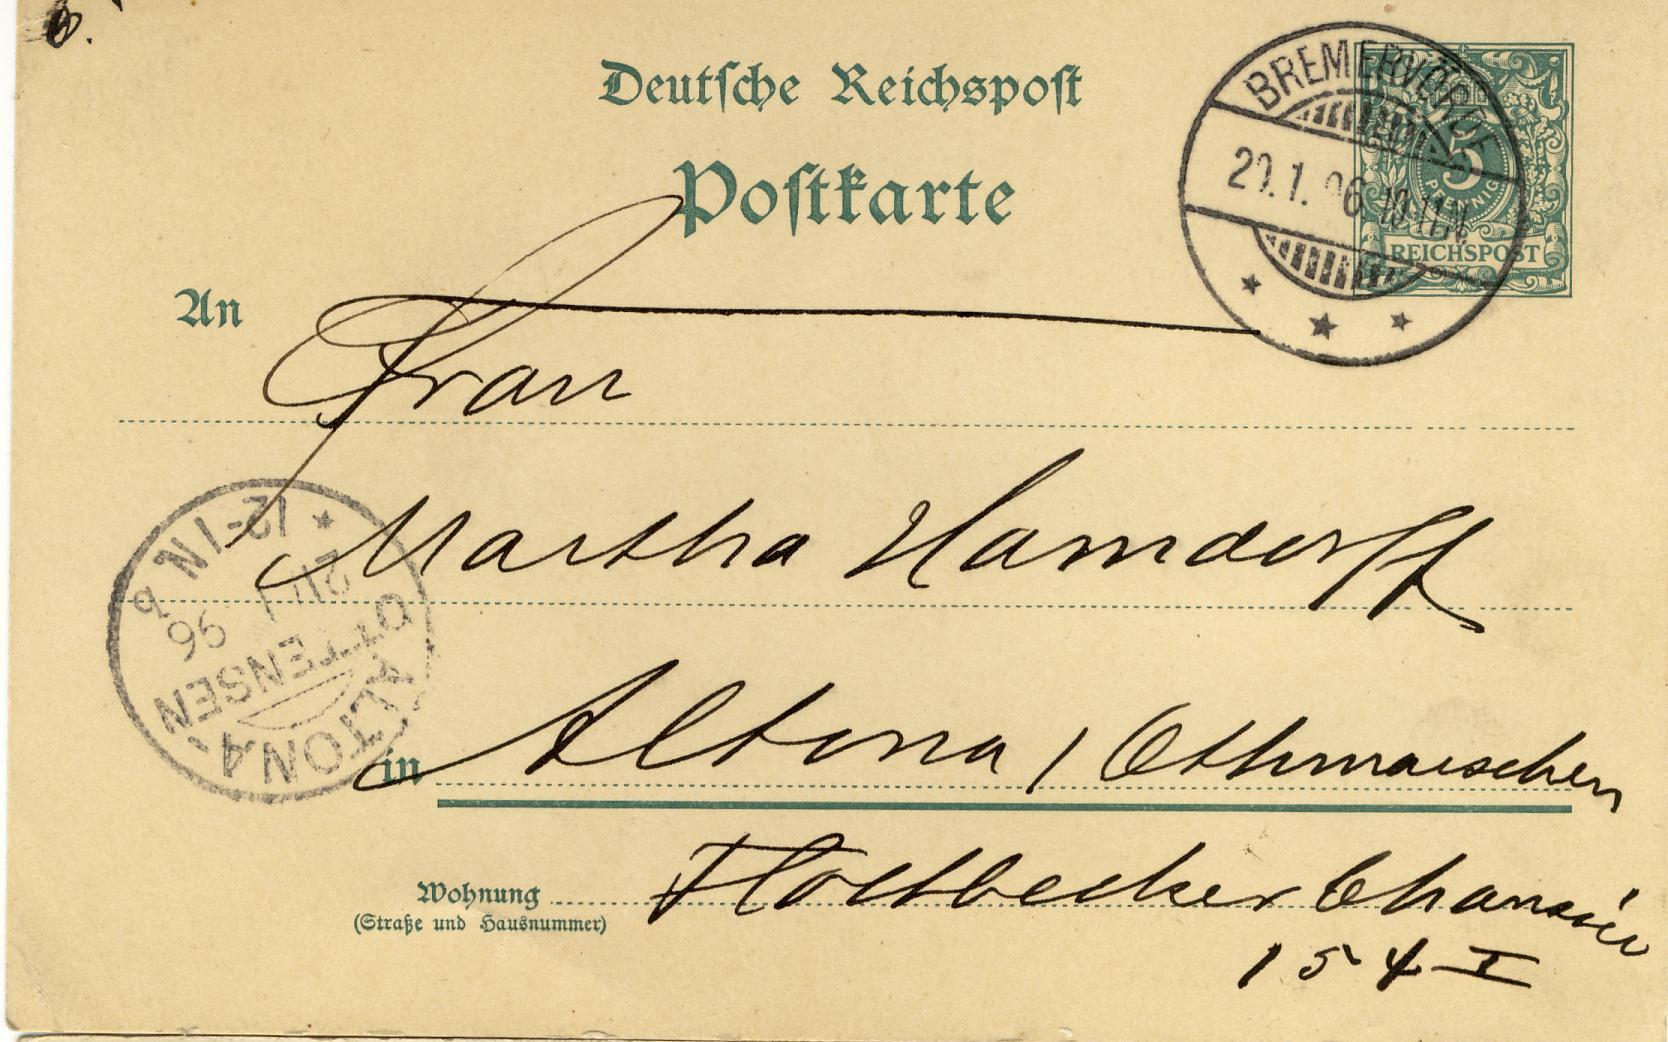 Deutsche Reichspost
Postkarte
BREMERVÖRDE
20.1.96 10-11 N.
5
PFENNIG
REICHSPOST
An
Frau
Martha Hamdorff
in Altona / Othmarschen
Wohnung Flottbecker Chaussée
(Straße und Hausnummer)
154 I
ALTONA-
OTTENSEN
21/1 96
12-1N b